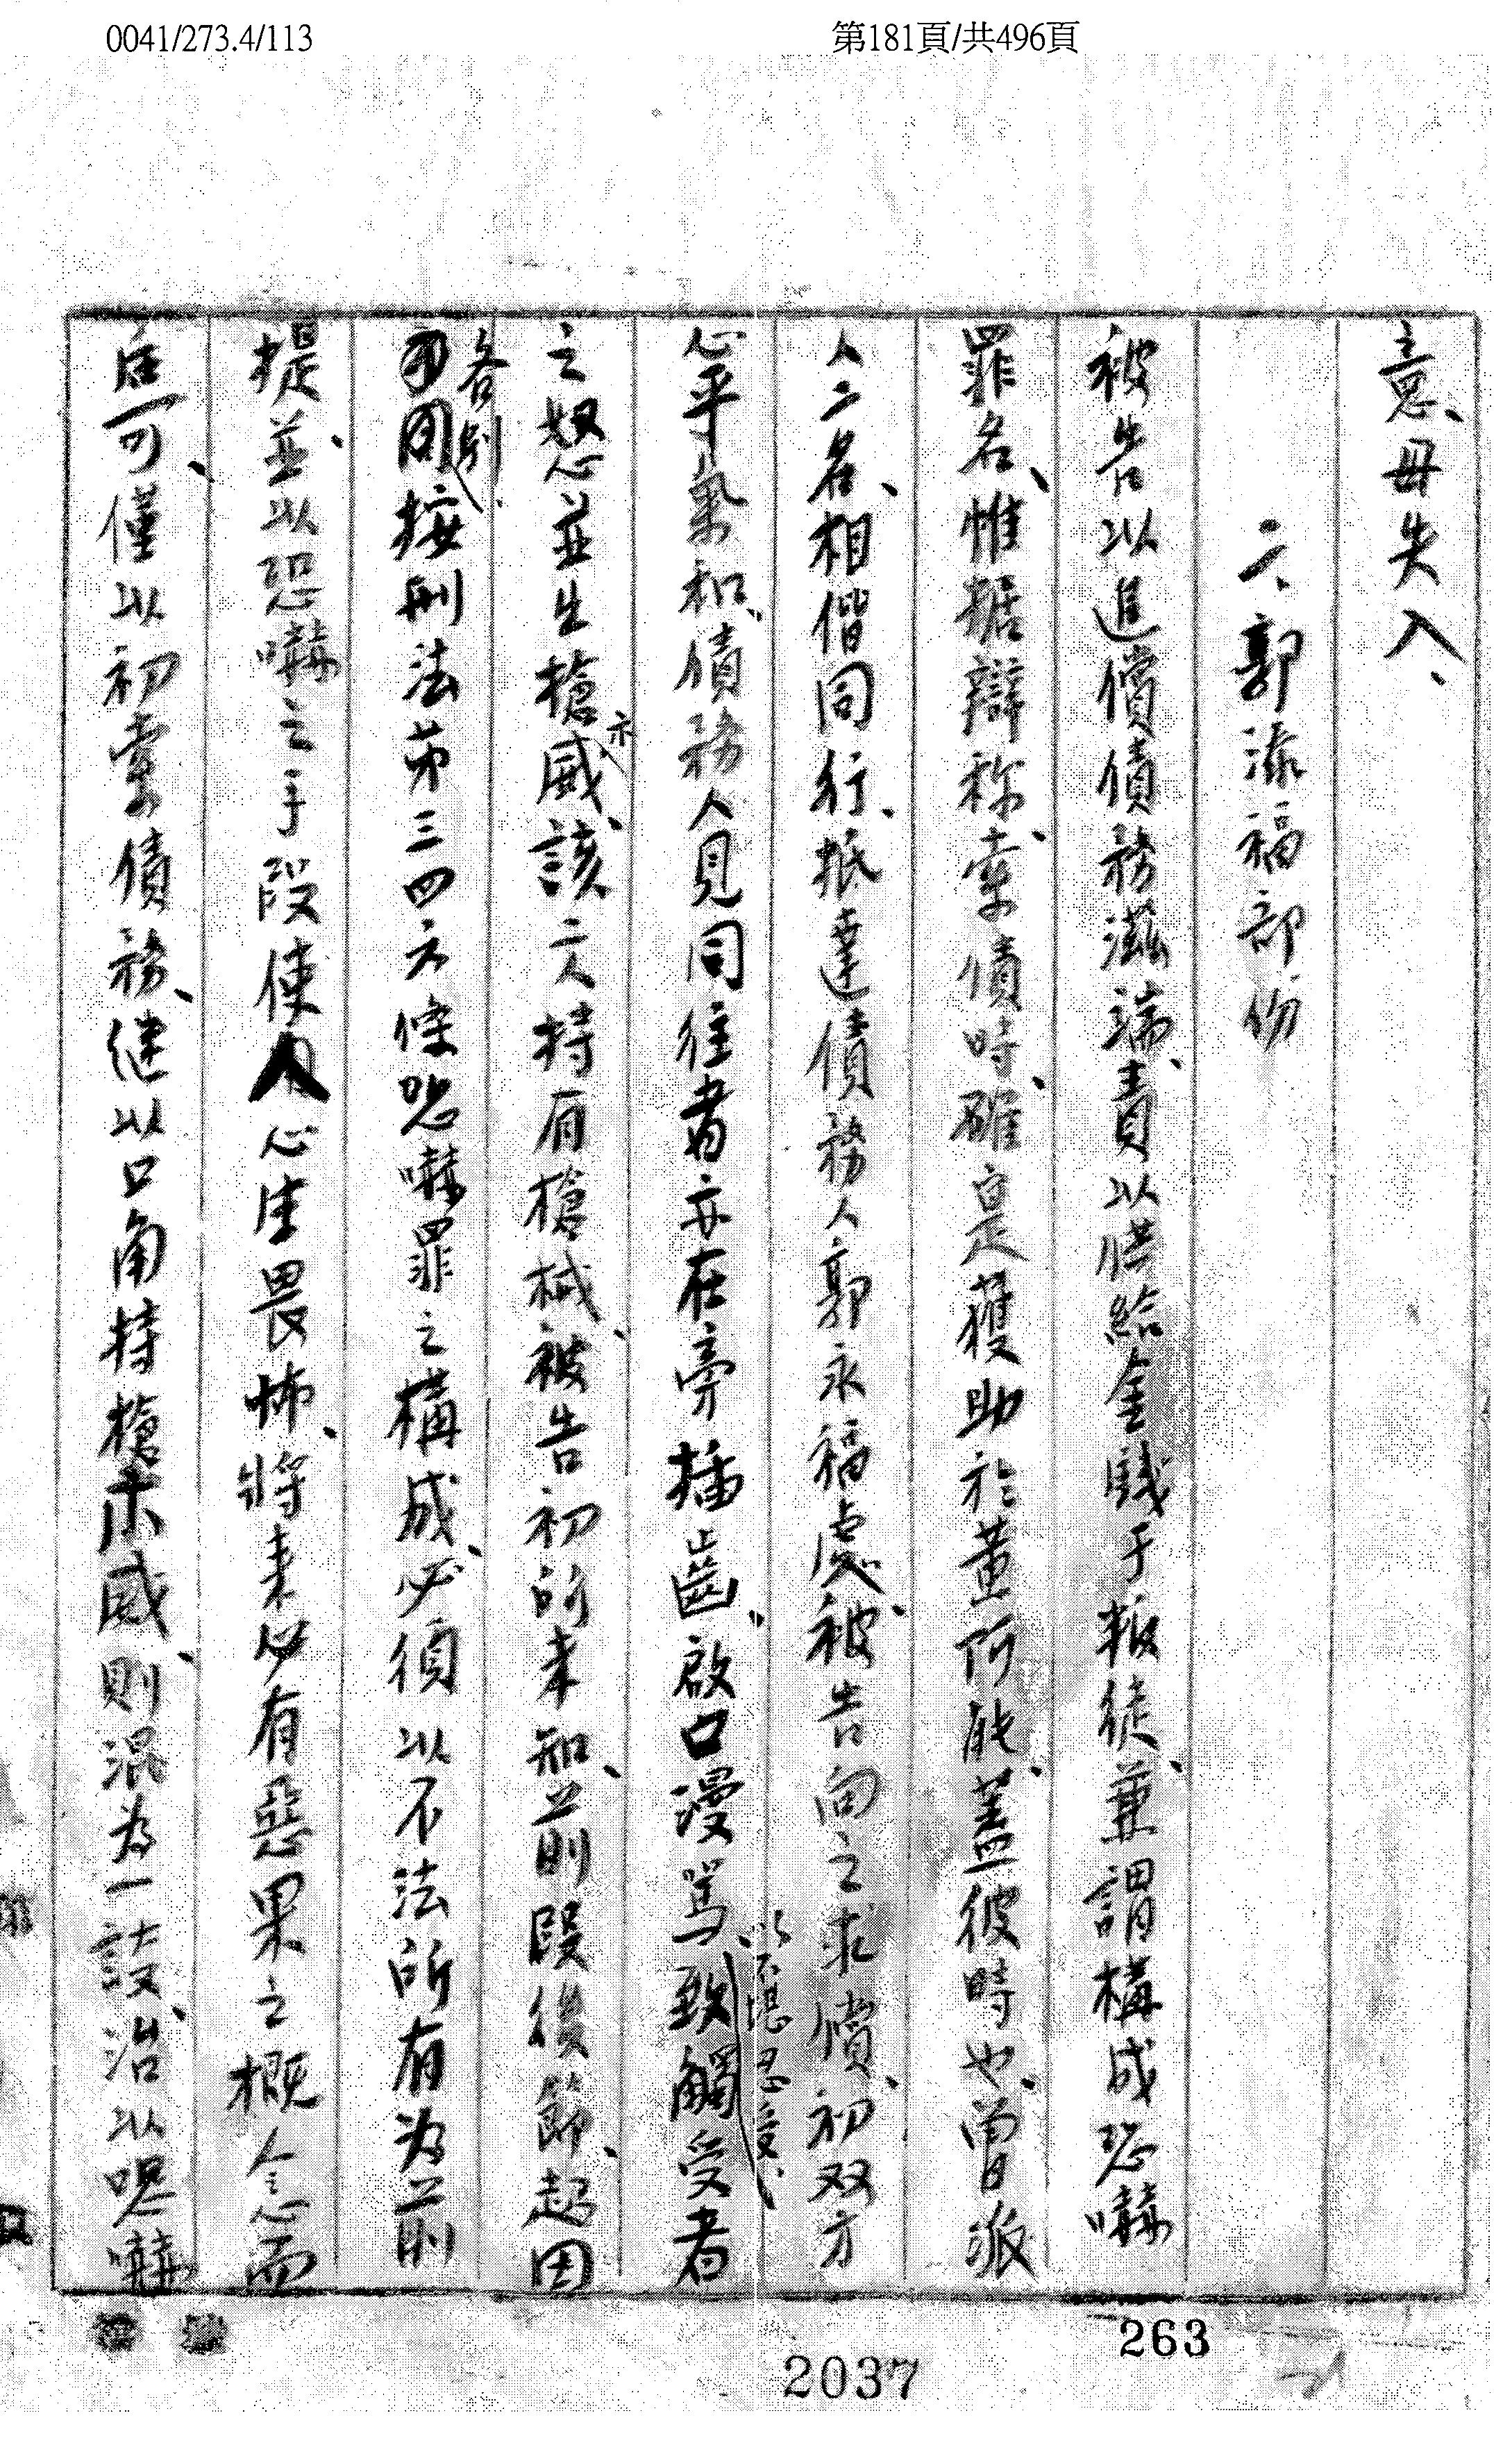 0041/273.4/113
第181頁/共496頁
意、毋失入、
六、郭添福部份
被告以進償債務滋端、責以供給金錢于叛徒、兼謂構成恐嚇
罪名、惟据辯称、索債時、確是獲助於黃阿能、蓋彼時也、曾派
人二名、相偕同行、抵達債務人郭永福處、被告向之求償、初双方
心平氣和、債務人見同往者亦在旁插齒、啟口漫罵、致觸受者
以不堪忍受、
之怒並生槍示威、該二人持有槍械、被告初所未知、前段後節、起因
各別、
同按刑法第三四六條恐嚇罪之構成、必須以不法所有為前
提、並以恐嚇之手段使人心生畏怖、將來必有惡果之概念而
后可、僅以初索債務、继以口角持槍示威、則混為一談、治以恐嚇
263
2037